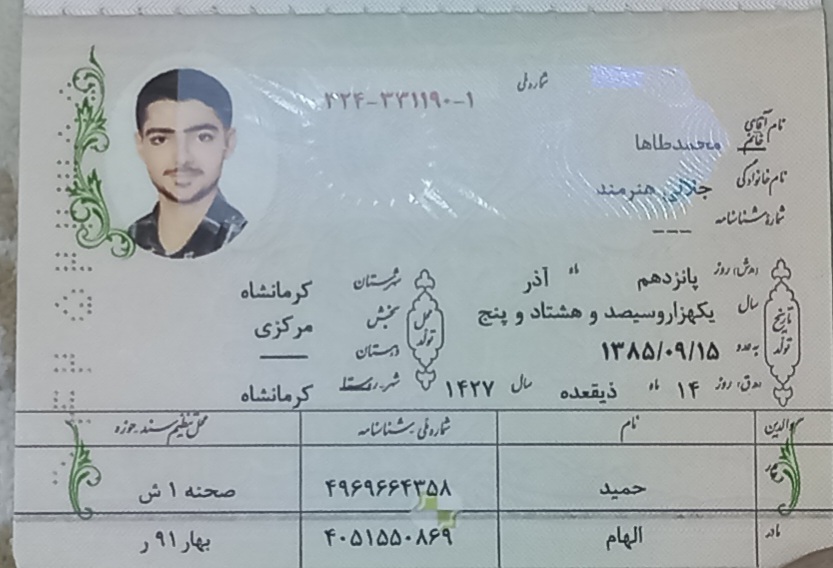 شماره ملی ۳۲۴-۳۳۱۱۹۰-۱
نام آقای خانم محمدطاها
نام خانوادگی جلالی هنرمند
شماره شناسنامه ---
تاریخ تولد
(ه.ش) روز پانزدهم ماه آذر
سال یکهزاروسیصد و هشتاد و پنج
به عدد ۱۳۸۵/۰۹/۱۵
(ه.ق) روز ۱۴ ماه ذیقعده سال ۱۴۲۷
محل تولد
شهرستان کرمانشاه
بخش مرکزی
دهستان ——
شهر - روستا کرمانشاه
والدین نام شماره ملی - شناسنامه محل تنظیم سند - حوزه
پدر حمید ۴۹۶۹۶۶۴۳۵۸ صحنه ۱ ش
مادر الهام ۴۰۵۱۵۵۰۸۶۹ بهار ۹۱ ر